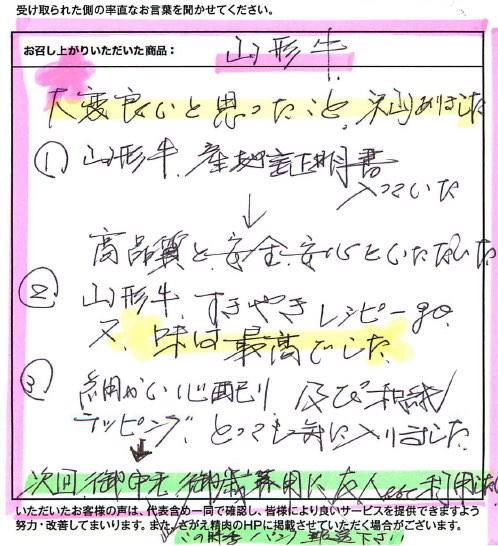 受け取られた側の率直なお言葉を聞かせてください。
お召し上がりいただいた商品： 山形牛
大変良いと思ったこと、沢山ありました
① 山形牛、産地証明書
入っていた
↓
高品質と安全、安心といただいた
② 山形牛、すきやきレシピー
又、味は最高でした
③ 細かい心配り、及び和紙
ラッピング、とっても気に入りました
次回、御中元、御歳暮用に友人
いただいたお客様の声は、代表含め一同で確認し、皆様により良いサービスを提供できますよう
努力・改善してまいります。また、さがえ精肉のHPに掲載させていただく場合がございます。
この時季 郵送下さい